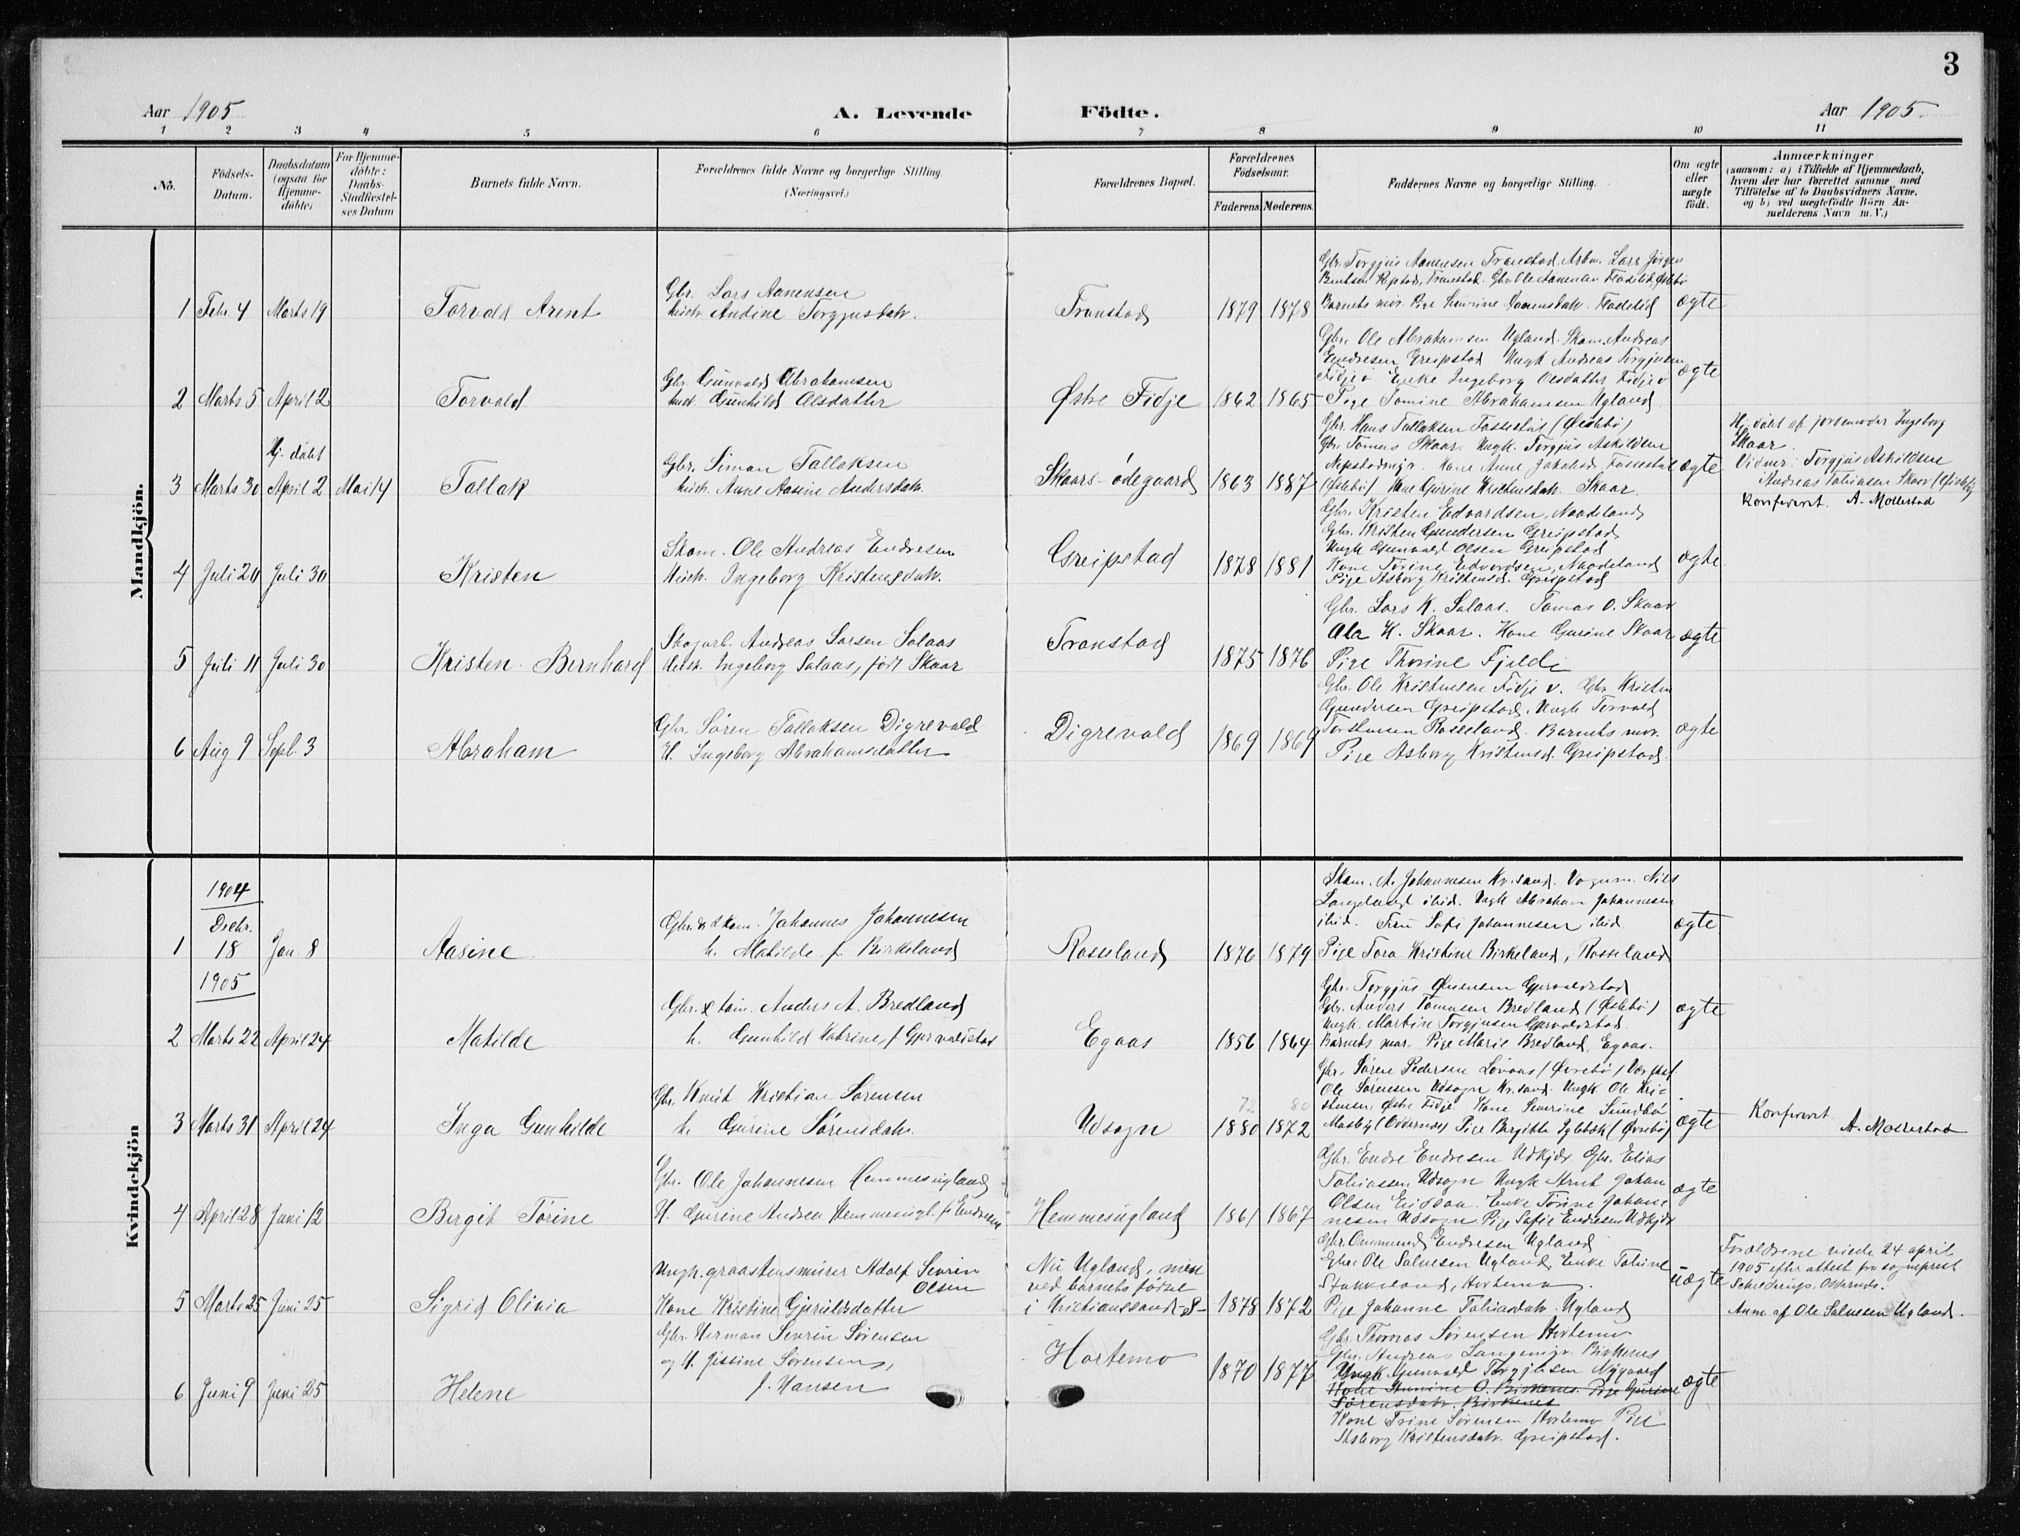 3
Aar 1905 A. Levende Födte. Aar 1905.
1 2 3 4 5 6 7 8 9 10 11
No.
Födsels-
Datum.
Daabsdatum
(ogsaa for
Hjemme-
døbte)
For Hjemme-
døbte:
Daabs-
Stadfæstel-
ses Datum
Barnets fulde Navn.
Forældrenes fulde Navne og borgerlige Stilling.
(Næringsvei.)
Forældrenes Bopæl.
Forældrenes
Födselsaar.
Faderens. Moderens.
Faddernes Navne og borgerlige Stilling.
Om ægte
eller
uægte
født.
Anmærkninger
(saasom: a) i Tilfælde af Hjemmedaab,
hvem der har forrettet samme med
Tilføielse af to Daabsvidners Navne,
og b) ved uægtefödte Börn An-
melderens Navn m. V.)
Mandkjön.
1 Febr. 4 Marts 19
Torvald Arent
Gbr. Lars Aanensen
Andine Torgjusdatr.
Tronstad
1879 1878
Gbr. Torgjus Aanensen Tronstad. Arbm. Lars Jørgen
Bentsen Tronstad. Gbr. Ole Aanensen
Barnets mor. Pige Severine
ægte
2 Marts 5 April 2
Torvald
Gbr. Gunvald Abrahamsen
Gunhild Olsdatter
Østre Fidje
1862 1865
Gbr. Ole Abrahamsen Ugland. Skom. Andreas
Endresen Greipstad Ungk Andreas Torgjusen
Fidje v Enke Ingeborg Olsdatter Fidje v
Pige Tomine Abrahamsen Ugland
ægte
3 Marts 30
Hj. døbt
April 2 Mai 14
Tallak
Gbr. Simon Tallaksen
Anne Aasine Andersdatr.
Skaars-ødegaard
1863 1887
Gbr. Hans Tallaksen (Øislebø)
Gbr. Tomas Skaar. Ungk. Torgjus Askildsen
Kone Anne
(Øislebø) Kone Gurine Kristensdatr. Skaar.
ægte
Hj. døbt af jordemoder Ingeborg
Skaar
Vidner: Torgjus Askildsen
Andreas Tobiassen Skaar (Øislebø)
Konfereret. A. Mollestad
4 Juli 20 Juli 30
Kristen
Skom. Ole Andreas Endresen
Ingeborg Kristensdatr.
Greipstad
1878 1881
Gbr. Kristen Edvardsen, Naadeland
Gbr. Kristen Gundersen Greipstad
Ungk Gunvald Olsen Greipstad
Kone Torine Edvardsen, Naadeland
Pige Asborg Kristensd. Greipstad
ægte
5 Juli 11 Juli 30
Kristen Bernhard
Skogarb. Andreas Larsen Salaas
Ingeborg Salaas, født Skaar
Tronstad
1875 1876
Gbr. Lars K. Salaas. Tomas O. Skaar
Ola H. Skaar. Kone Gurine Skaar
Pige Thorine
ægte
6 Aug 9 Sept. 3
Abraham
Gbr. Søren Tallaksen Digrevald
H. Ingeborg Abrahamsdatter
Digrevald
1869 1869
Gbr. Ole Kristensen Fidje v. Gbr Kristen
Gundersen Greipstad. Ungk Torvald
Rosseland. Barnets mor.
Pige Asborg Kristensd. Greipstad.
ægte
Kvindekjön
1904
Decbr.
1 18 Jan. 8
Aasine
Gbr. & skom. Johannes Johannesen
h. Matilde f. Birkeland
Rosseland
1876 1879
Skom. A. Johannesen Kr.sand. Vognm. Nils
Langeland ibid. Ungk Abraham Johannesen
ibid. Fru Sofi Johannesen ibid.
Pige Tora Kristine Birkeland, Rosseland
ægte
1905
2 Marts 22 April 24
Matilde
Gbr. & tøm. Anders A. Bredland
h. Gunhild Katrine f.
Egaas
1856 1864
Gbr. Torgjus
Gbr. Anders Tomasen Bredland (Øislebø)
Ungk. Martin Torgjusen
Barnets mor. Pige Marie Bredland, Egaas.
ægte
3 Marts 31 April 24
Inga Gunhilde
Gbr. Knut Kristian Sørensen
h. Gurine Sørensdatr.
Udsogn
72 80
1880 1872
Gbr. Søren Pedersen (Øvrebø)
Ole Sørensen Udsogn Kr.sand. Ungk Ole Kri-
stensen, Østre Fidje. Kone Severine
Mosby (Oddernes) Pige Birgitte (Øvrebø)
ægte
Konfereret.
A. Mollestad
4 April 28 Juni 12
Birgit Törine
Gbr. Ole Johannesen Hemmesugland
H. Gurine Andrea Hemmesugl. f. Endresen
Hemmesugland
1861 1867
Gbr. Endre Endresen Udkjær Gbr. Elias
Tobiassen Udsogn Ungk Arnt Johan
Olsen Enke Törine Johanne-
nesen Udsogn Pige Sofie Endresen Udkjær
ægte
5 Marts 25 Juni 25
Sigrid Olivia
Ungk. graastensmurer Adolf Sevrin
Olsen
Kone Kristine Gjerulsdatter
Nu Ugland, men
ved barnets fødsel
i Kristianssand S-
1878 1872
Gbr. Ommund Endresen Ugland
Gbr. Ole Salvesen Ugland, Enke Tobine
Stokkeland, Hortemo.
Pige Johanne Tobiasdatr. Ugland
uægte
Forældrene viede 24 april
1905 efter attest fra sogneprest
Schiedrups, Oddernes.
Anm af Ole Salvesen Ugland.
6 Juni 9 Juni 25
Helene
Gbr. Herman Sevrin Sørensen
og H. Jissine Sørensen,
f. Hansen
Hortemo
1870 1877
Gbr. Thomas Sørensen Hortemo
Gbr. Andreas Birkenes
Ungk Gunvald Torgjusen Nygaard
Kone O. Birkenes. Pige Gurine
Sørensdatr. Birkenes
Kone Trine Sørensen Hortemo Pige
Asborg Kristensdatr. Greipstad.
ægte